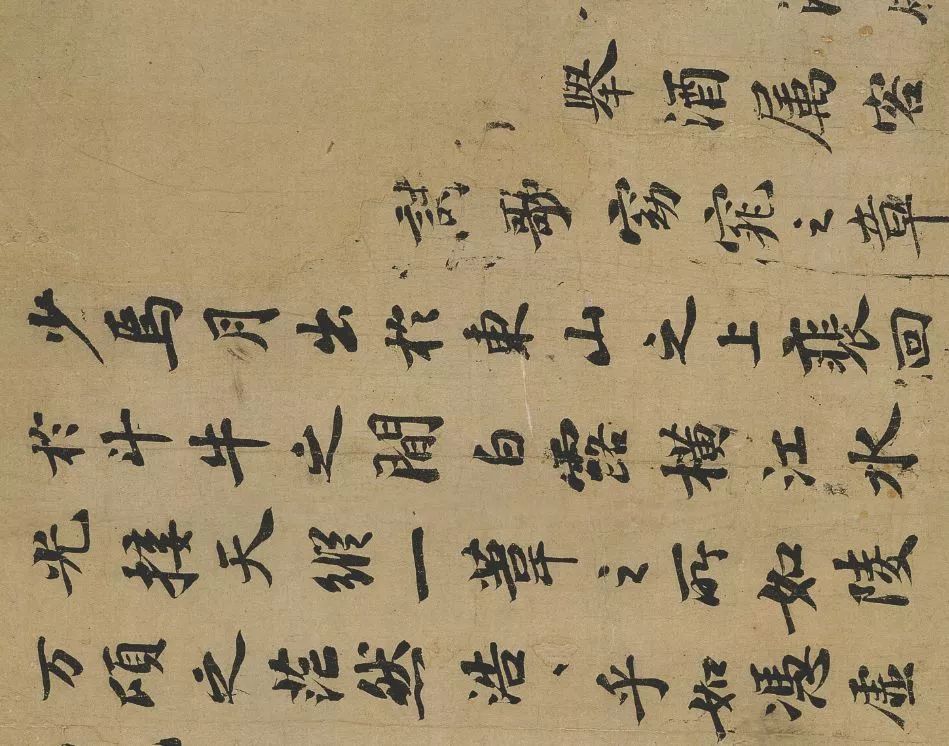 舉酒屬客
詩歌窈窕之章
少焉月出於東山之上裵回
於斗牛之間白露橫江水
光接天縱一葦之所如陵
万頃之茫然浩〻乎如馮虛